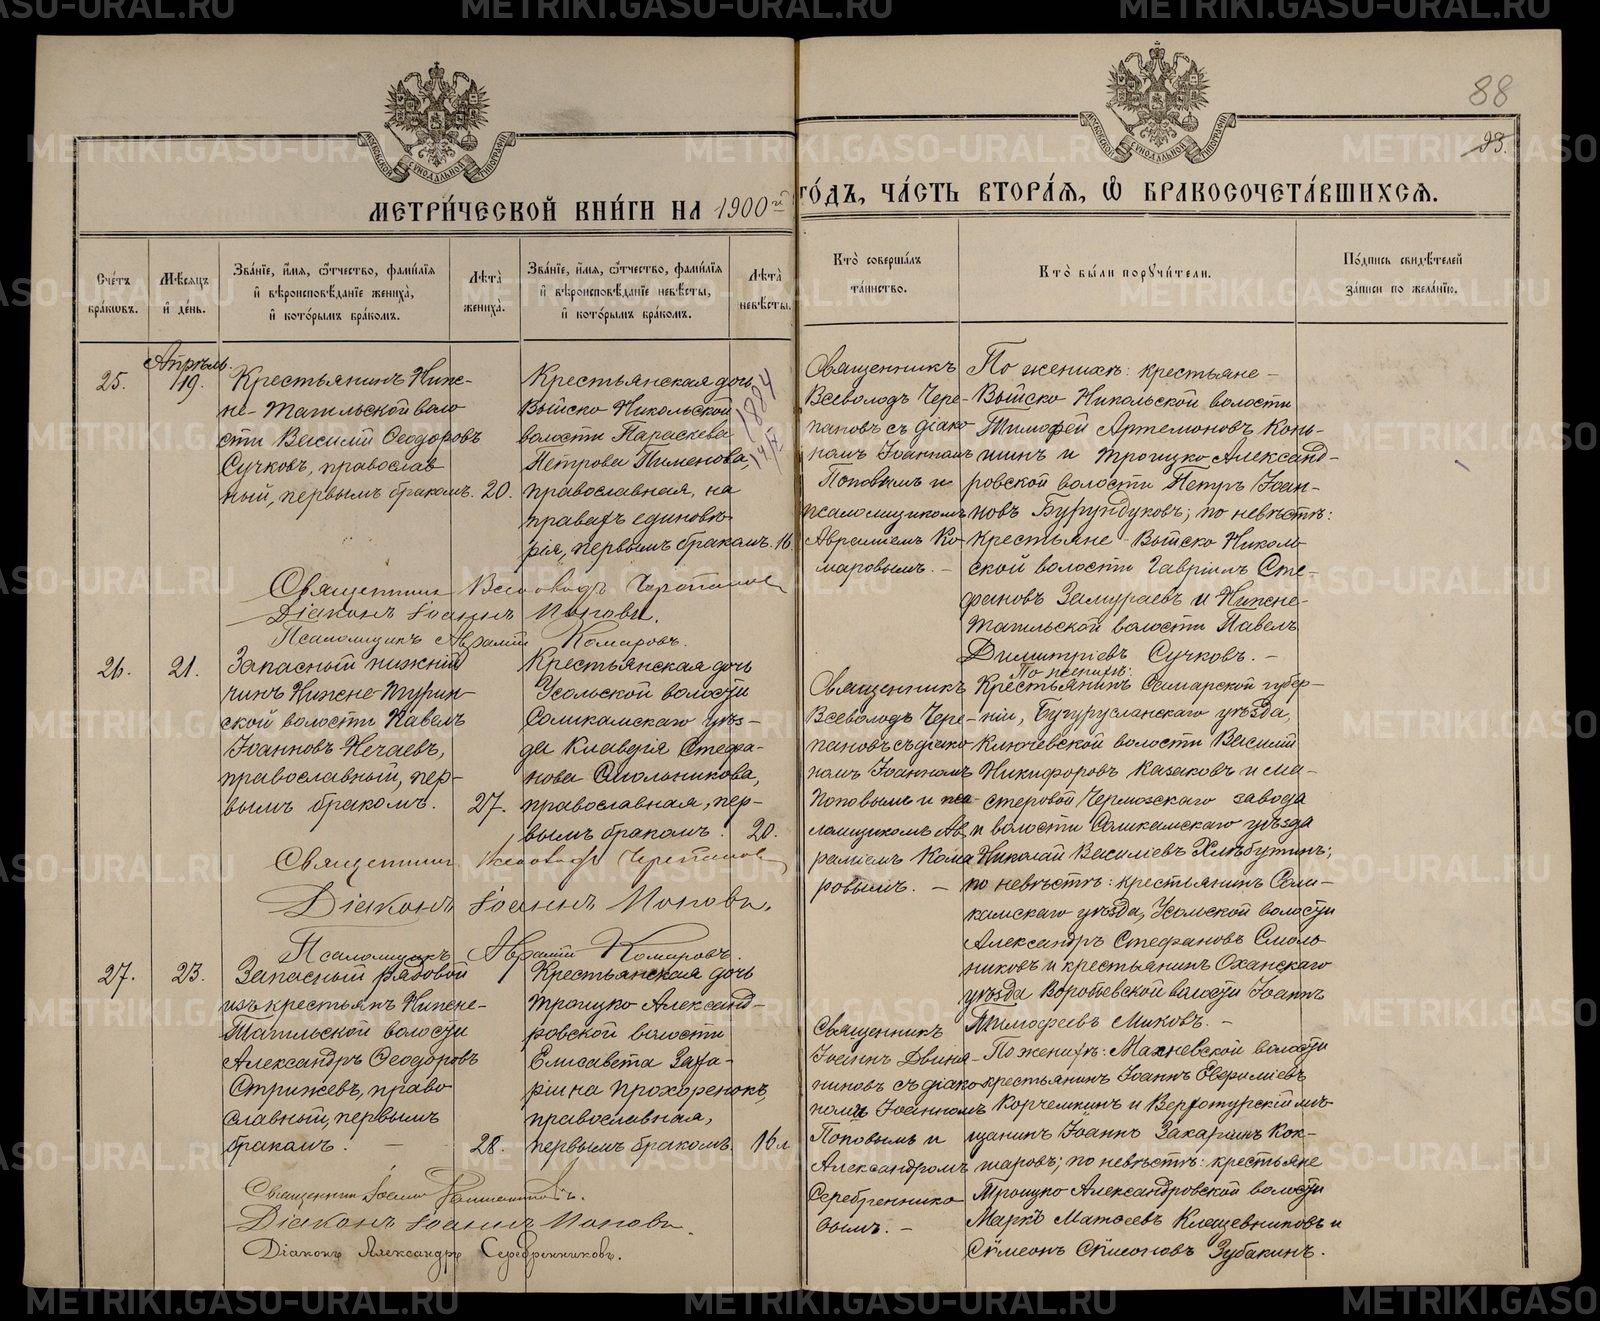 METRIKI.GASO-URAL.RU
88
93.
МОСКОВСКОЙ СѴНОДАЛЬНОЙ ТИПОГРАФІИ
МОСКОВСКОЙ СѴНОДАЛЬНОЙ ТИПОГРАФІИ
МЕТРИ́ЧЕСКОЙ КНИ́ГИ НА 1900й ГО́ДЪ, ЧА́СТЬ ВТОРА́Я, Ѽ БРАКОСОЧЕТА́ВШИХСЯ.
Сче́тъ
бра́кωвъ.
Мѣ́сяцъ
и҆ де́нь.
Зва́нїе, и҆́мя, ѻ҆́тчество, фами́лїя
и҆ вѣроисповѣ́данїе жениха̀,
и҆ кото́рымъ бра́комъ.
Лѣ́та
жениха̀.
Зва́нїе, и҆́мя, ѻ҆́тчество, фами́лїя
и҆ вѣроисповѣ́данїе невѣ́сты,
и҆ кото́рымъ бра́комъ.
Лѣ́та
невѣ́сты.
Кто̀ соверша́лъ
та́инство.
Кто̀ бы́ли порꙋчи́тели.
По́дпись свидѣ́телей
за́писи по жела́нїю.
25.
Апрѣль.
19.
Крестьянинъ Ниж-
не-Тагильской воло
сти Василій Ѳеодоровъ
Сучковъ, православ
ный, первымъ бракомъ.
20.
Крестьянская дочь
Выйско Никольской
волости Параскева
Петрова Пименова,
православная, на
правахъ единовѣ-
рія, первымъ бракомъ.
16
1884
Священникъ
Всеволодъ Чере-
пановъ съ діако
номъ Іоанномъ
Поповымъ и
псаломщикомъ
Авраміемъ Ко
маровымъ. –
По женихѣ: крестьяне –
Выйско Никольской волости
Тимофей Артемоновъ Конь-
шинъ и Троицко Александ-
ровской волости Петръ Іоан-
новъ Бурундуковъ; по невѣстѣ:
крестьяне – Выйско Николь
ской волости Гавріилъ Сте-
фановъ Замураевъ и Нижне-
Тагильской волости Павелъ
Димитріевъ Сучковъ. –
Священникъ Всеволодъ Черепановъ
Діаконъ Іоаннъ Поповъ.
Псаломщикъ Аврамій Комаровъ.
26.
21.
Запасный нижній
чинъ Нижне-Турин-
ской волости Павелъ
Іоанновъ Нечаевъ,
православный, пер-
вымъ бракомъ.
27.
Крестьянская дочь
Усольской волости
Соликамскаго уѣз-
да Клавдія Стефа-
нова Смольникова,
православная, пер-
вымъ бракомъ.
20.
Священникъ
Всеволодъ Чере-
пановъ съ діако
номъ Іоанномъ
Поповымъ и пса-
ломщикомъ Ав
раміемъ Кома
ровымъ. –
По женихѣ:
Крестьянинъ Самарской губер-
ніи, Бугурусланскаго уѣзда,
Ключевской волости Василій
Никифоровъ Казаковъ и ма-
стеровой Чермозскаго завода
и волости Соликамскаго уѣзда
Николай Василіевъ Хлѣбутинъ;
по невѣстѣ: крестьянинъ Соли-
камскаго уѣзда, Усольской волости
Александръ Стефановъ Смоль
никовъ и крестьянинъ Оханскаго
уѣзда Воробьевской волости Іоаннъ
Тимофеевъ Миковъ. –
Священникъ Всеволодъ Черепановъ
Діаконъ Іоаннъ Поповъ.
Псаломщикъ Аврамій Комаровъ.
27.
23.
Запасный рядовой
изъ крестьянъ Нижне-
Тагильской волости
Александръ Ѳеодоровъ
Стрижевъ, право
славный, первымъ
бракомъ. –
28.
Крестьянская дочь
Троицко Александ-
ровской волости
Елисавета Заха-
ріина Прохоренокъ,
православная,
первымъ бракомъ.
16 л
Священникъ
Іоаннъ Двиня-
ниновъ съ діако
номъ Іоанномъ
Поповымъ и
Александромъ
Серебреннико
вымъ. –
По женихѣ: Махневской волости
крестьянинъ Іоаннъ Евфиміевъ
Корчемкинъ и Верхотурскій мѣ
щанинъ Іоаннъ Захаріинъ Кок-
шаровъ; по невѣстѣ: крестьяне
Троицко Александровской волости
Маркъ Матѳеевъ Клещевниковъ и
Сѵмеонъ Сѵмеоновъ Зубакинъ.
Священникъ Іоаннъ
Діаконъ Іоаннъ Поповъ.
Діаконъ Александръ Серебренниковъ.